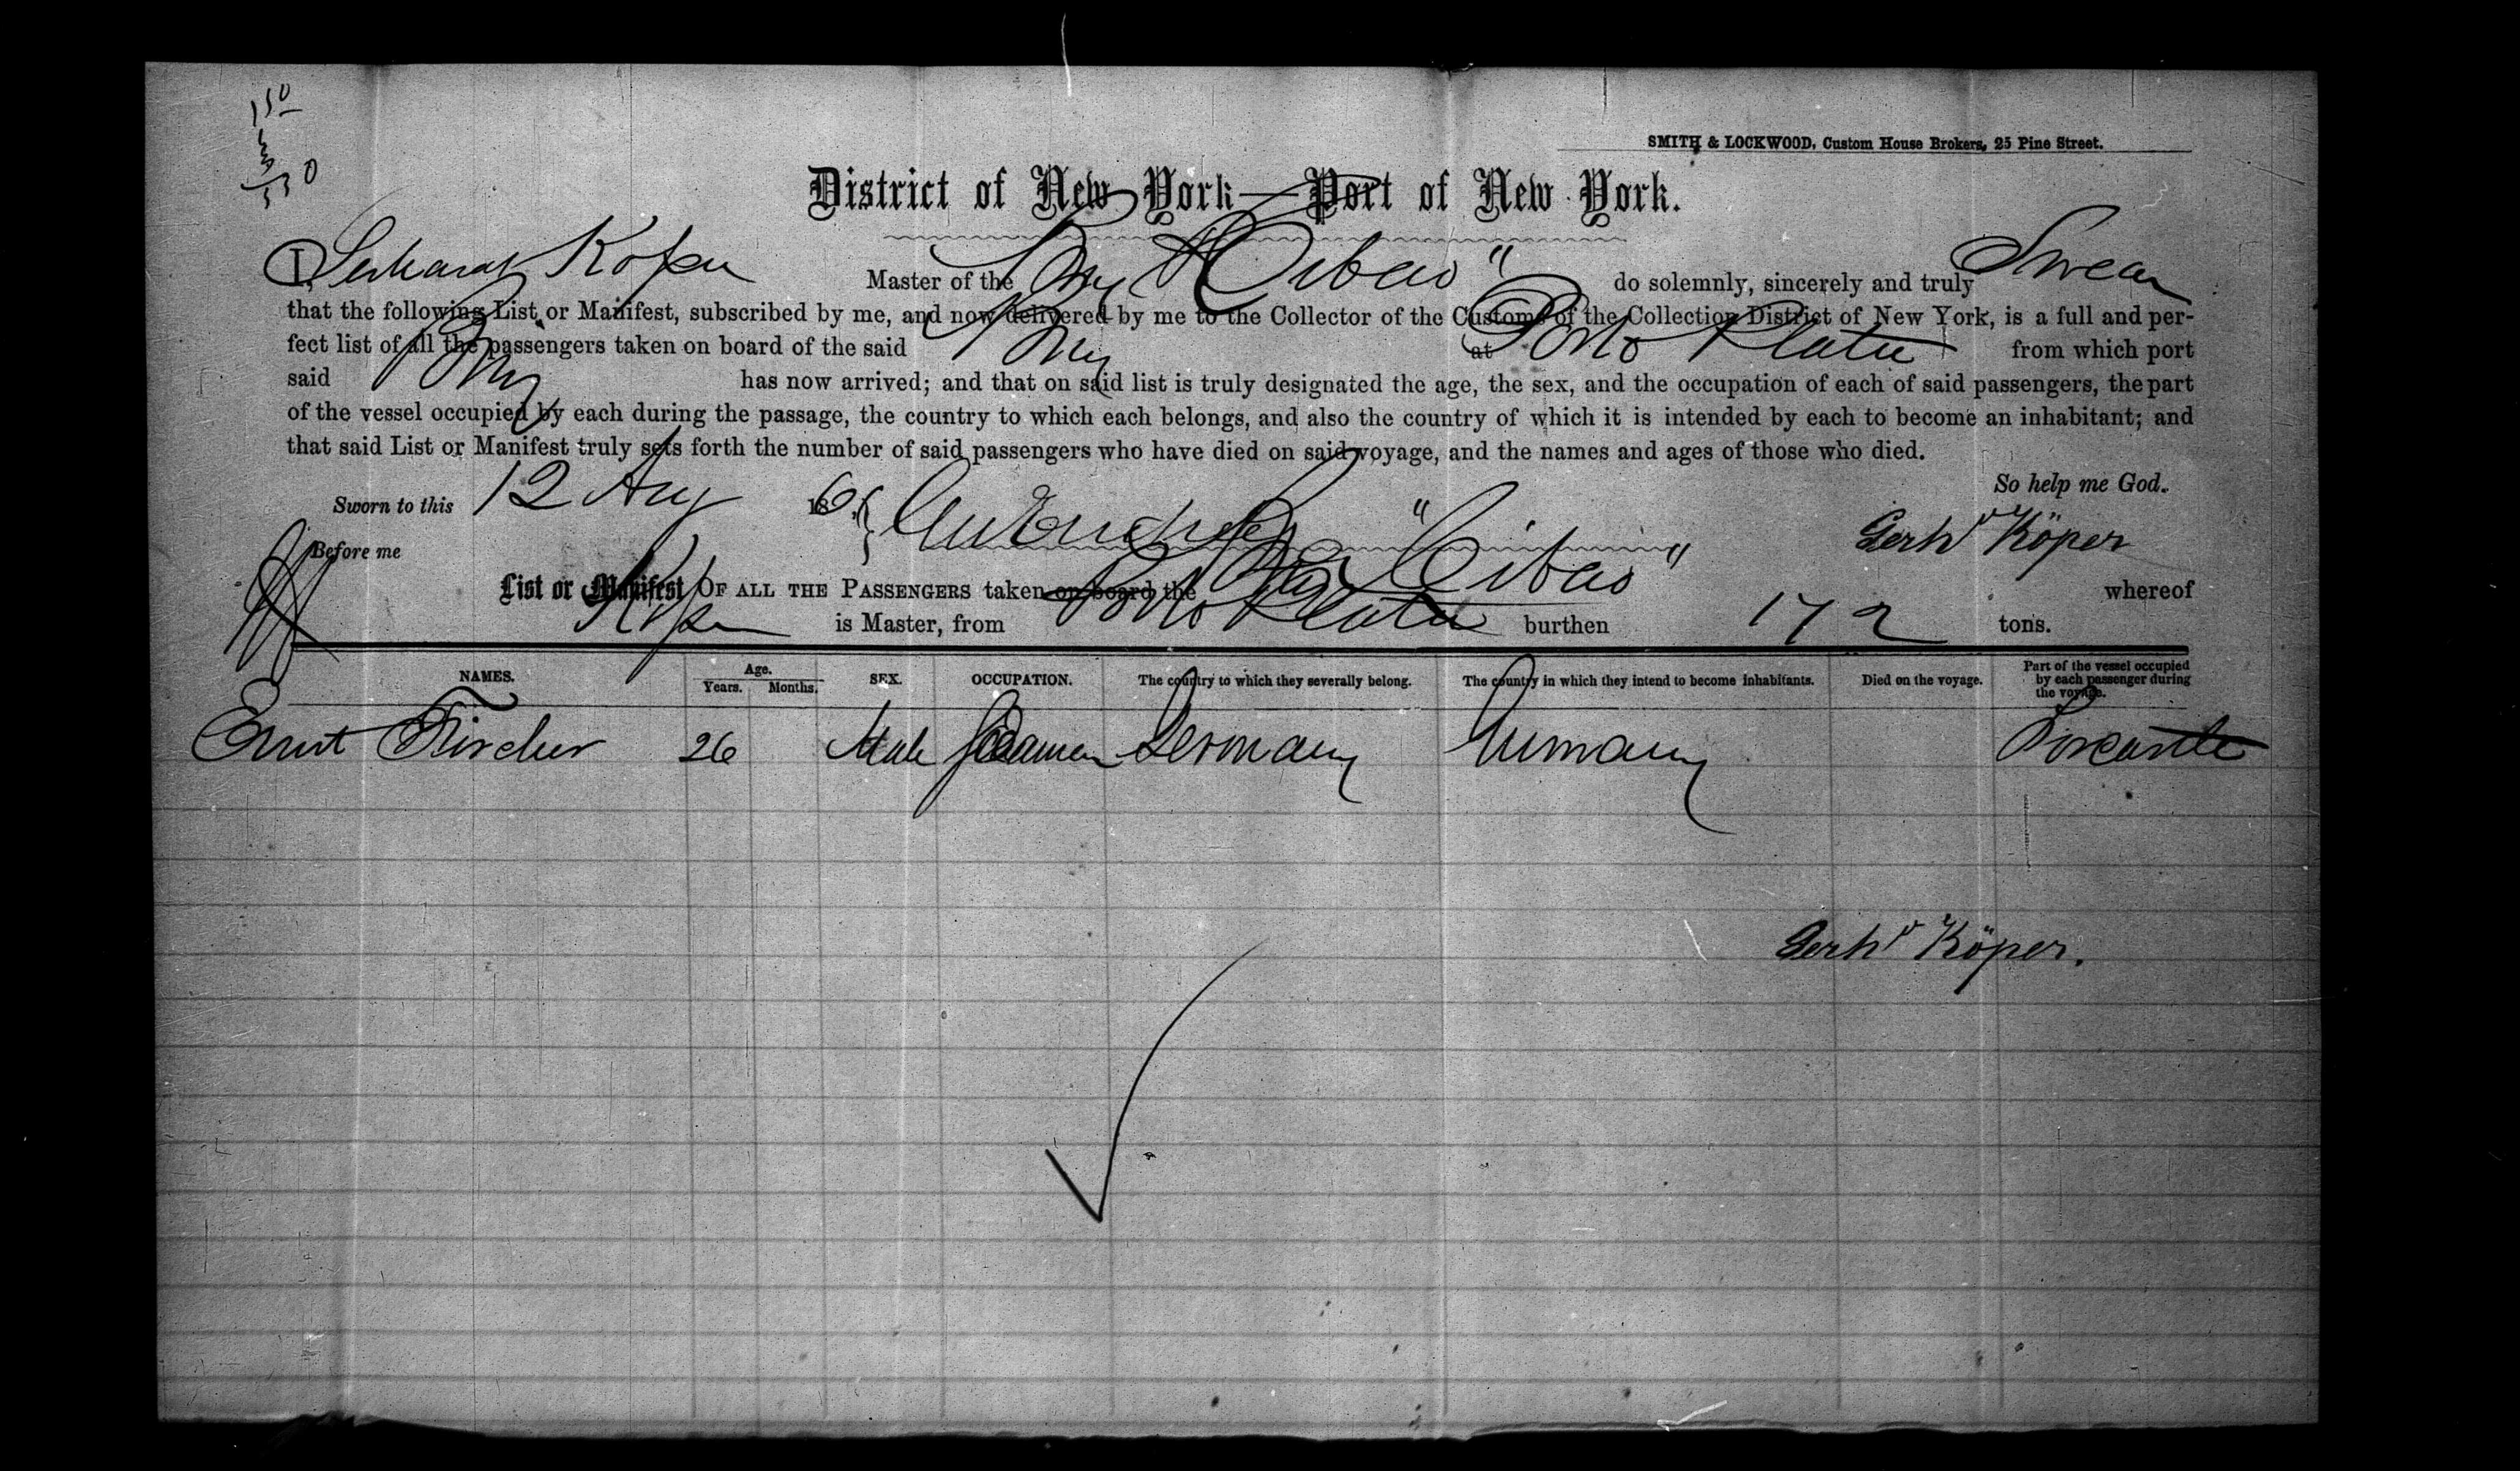 150
SMITH & LOCKWOOD, Custom House Brokers, 25 Pine Street.
District of New York—Port of New York.
I, Gerhard Köper Master of the Brig "Cibao" do solemnly, sincerely and truly Swear
that the following List or Manifest, subscribed by me, and now delivered by me to the Collector of the Customs of the Collection District of New York, is a full and per-
fect list of all the passengers taken on board of the said Brig at Porto Platte from which port
said Brig has now arrived; and that on said list is truly designated the age, the sex, and the occupation of each of said passengers, the part
of the vessel occupied by each during the passage, the country to which each belongs, and also the country of which it is intended by each to become an inhabitant; and
that said List or Manifest truly sets forth the number of said passengers who have died on said voyage, and the names and ages of those who died.
So help me God.
Sworn to this 12 Aug 186
Gerhd Köper
Before me
List or Manifest OF ALL THE PASSENGERS taken on board the Brig "Cibao" whereof
Köper is Master, from Porto Platte burthen 172 tons.
NAMES. Age. Years. Months. SEX. OCCUPATION. The country to which they severally belong. The country in which they intend to become inhabitants. Died on the voyage. Part of the vessel occupied by each passenger during the voyage.
Ernst Fircher 26 Male Seaman Germany Germany Forcastle
Gerhd Köper.